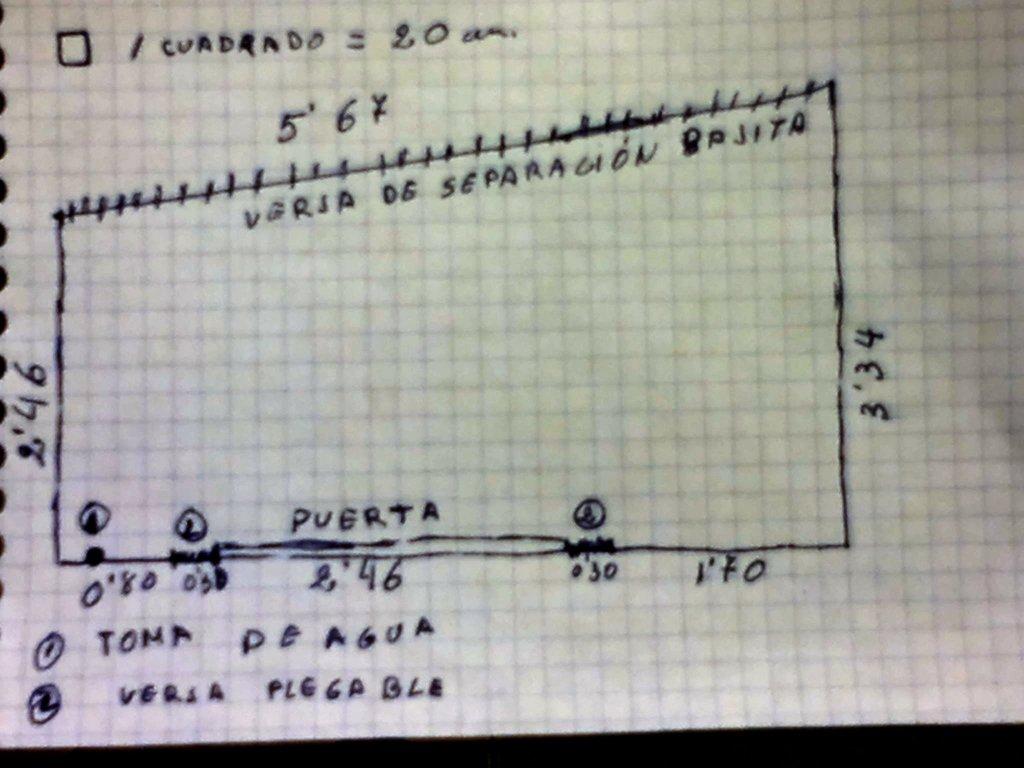 1 CUADRADO = 20 cm.
5'67
VERJA DE SEPARACIÓN BAJITA
2'46
3'34
1
2
PUERTA
2
0'80
0'30
2'46
0'30
1'70
1 TOMA DE AGUA
2 VERJA PLEGABLE